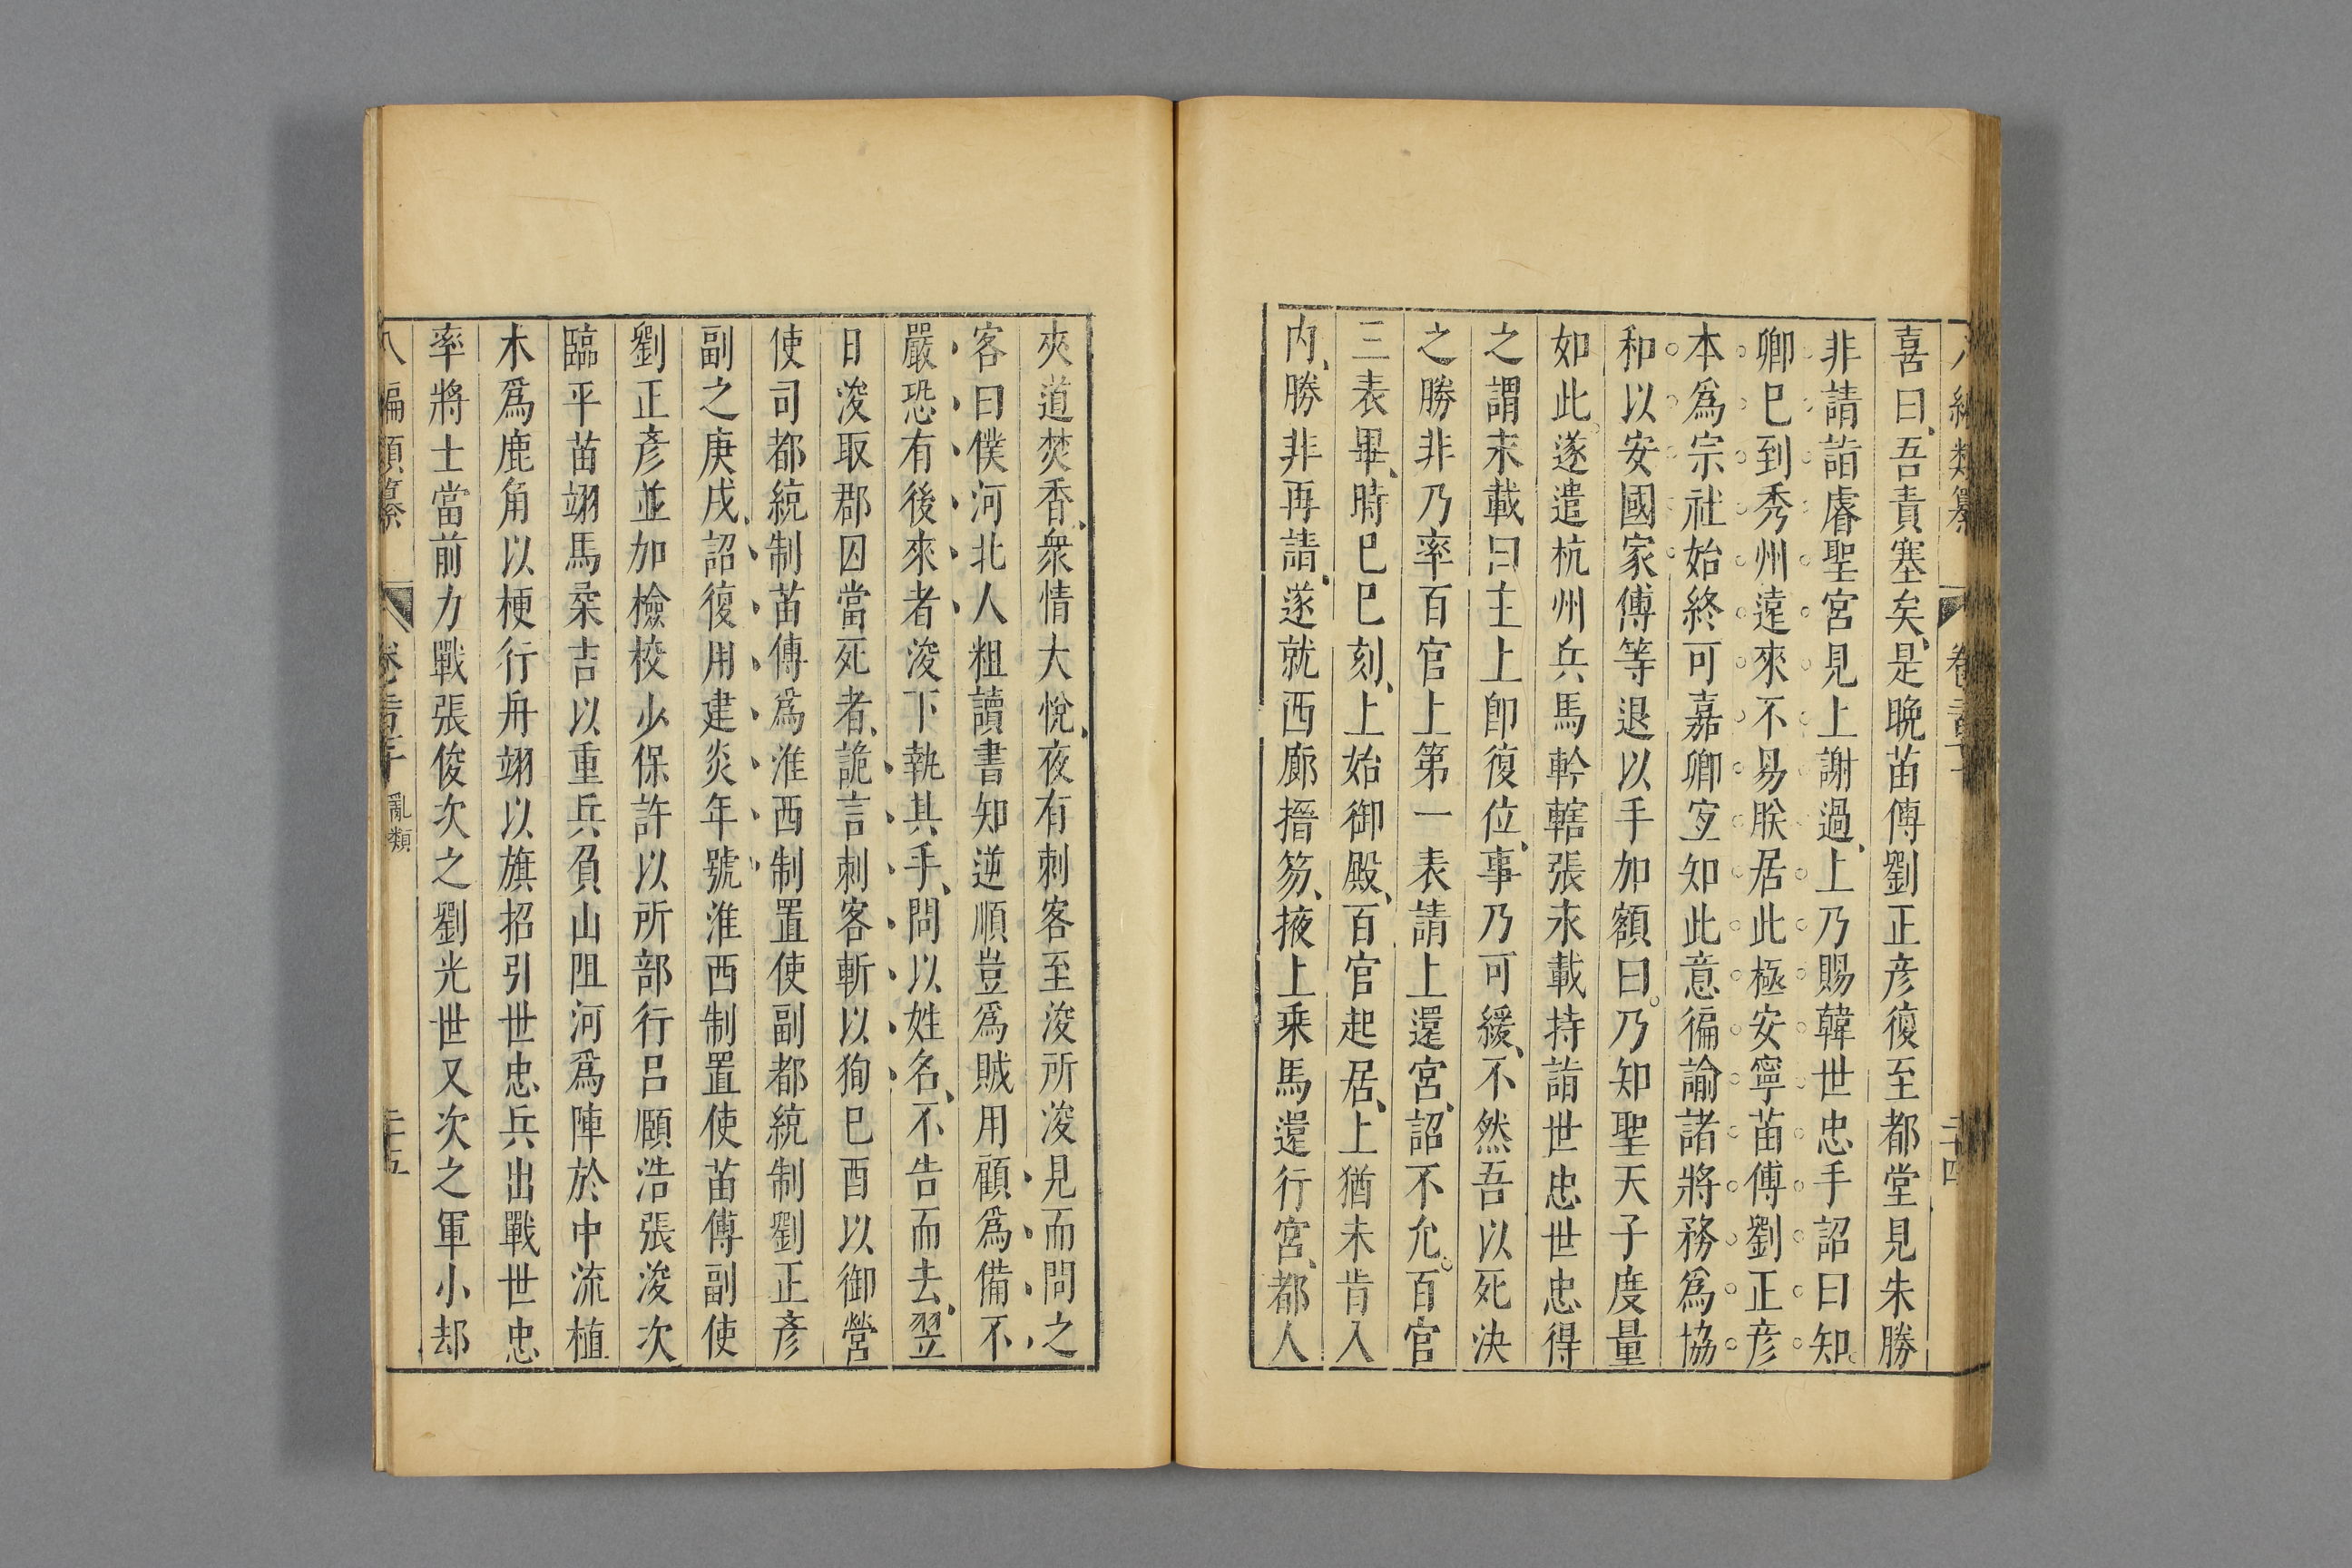 喜曰、吾責塞矣、是晚苗傅劉正彦復至都堂見朱勝
非請詣睿聖宮見上謝過、上乃賜韓世忠手詔曰知
卿巳到秀州遠來不易朕居此極安寧苗傅劉正彦
本爲宗社始終可嘉卿宜知此意徧諭諸將務爲協
和以安國家傅等退以手加額曰。乃知聖天子度量
如此遂遣杭州兵馬軨轄張永載持詣世忠世忠得
之謂永載曰主上卽復位、事乃可緩、不然吾以死決
之勝非乃率百官上第一表請上還宮、詔不允。百官
三表畢、時巳巳刻、上始御殿、百官起居、上猶未肯入
内、勝非再請、遂就西廊搢笏、掖上乘馬還行宮、都人
夾道焚香、衆情大悅、夜有刺客至浚所浚見而問之
客曰僕河北人粗讀書知逆順豈爲賊用顧爲備不
嚴恐有後來者浚下執其手、問以姓名、不告而去、翌
日浚取郡囚當死者、詭言刺客斬以狥巳酉以御營
使司都統制苗傅爲淮西制置使副都統制劉正彦
副之庚戌、詔復用建炎年號淮西制置使苗傅副使
劉正彦並加檢校少保許以所部行呂頤浩張浚次
臨平苗翊馬柔吉以重兵負山阻河爲陣於中流植
木爲鹿角以梗行舟翊以旗招引世忠兵出戰世忠
率將士當前力戰張俊次之劉光世又次之軍小却
八編類纂 卷 亂類 二十五